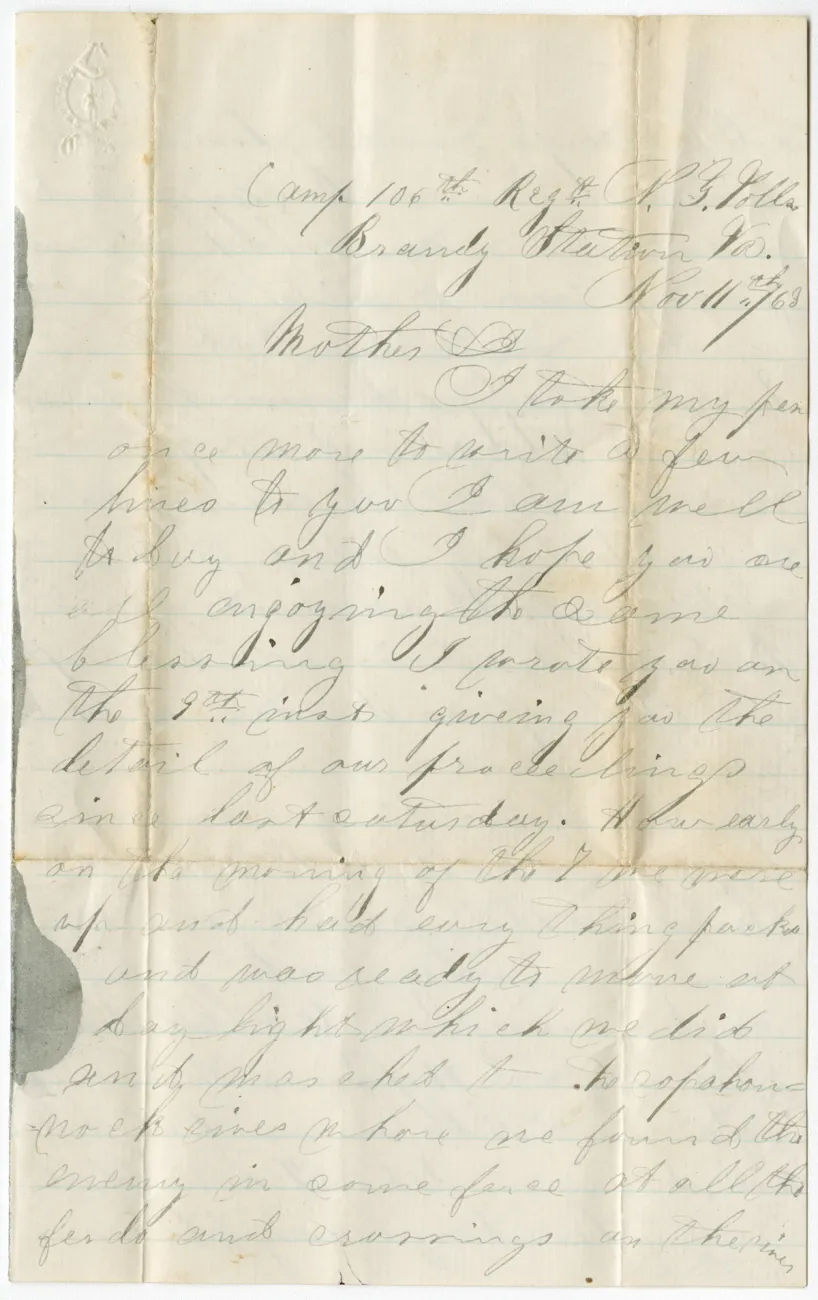 Camp 106th Regt N. Y. Volls
Brandy Station Va.
Nov 11th/63
Mother
I take my pen
once more to write a few
lines to you I am well
to day and I hope you are
all engoying the same
blessing I wrote you on
the 9th inst giveing you the
detail of our proceedings
since last saturday. How early
on the morning of the 7 we were
up and had evry thing packd
and was ready to move at
day light which we did
and marched to the ropahan=
=nock river where we found the
enemy in some force at all the
fords and crossings on the river